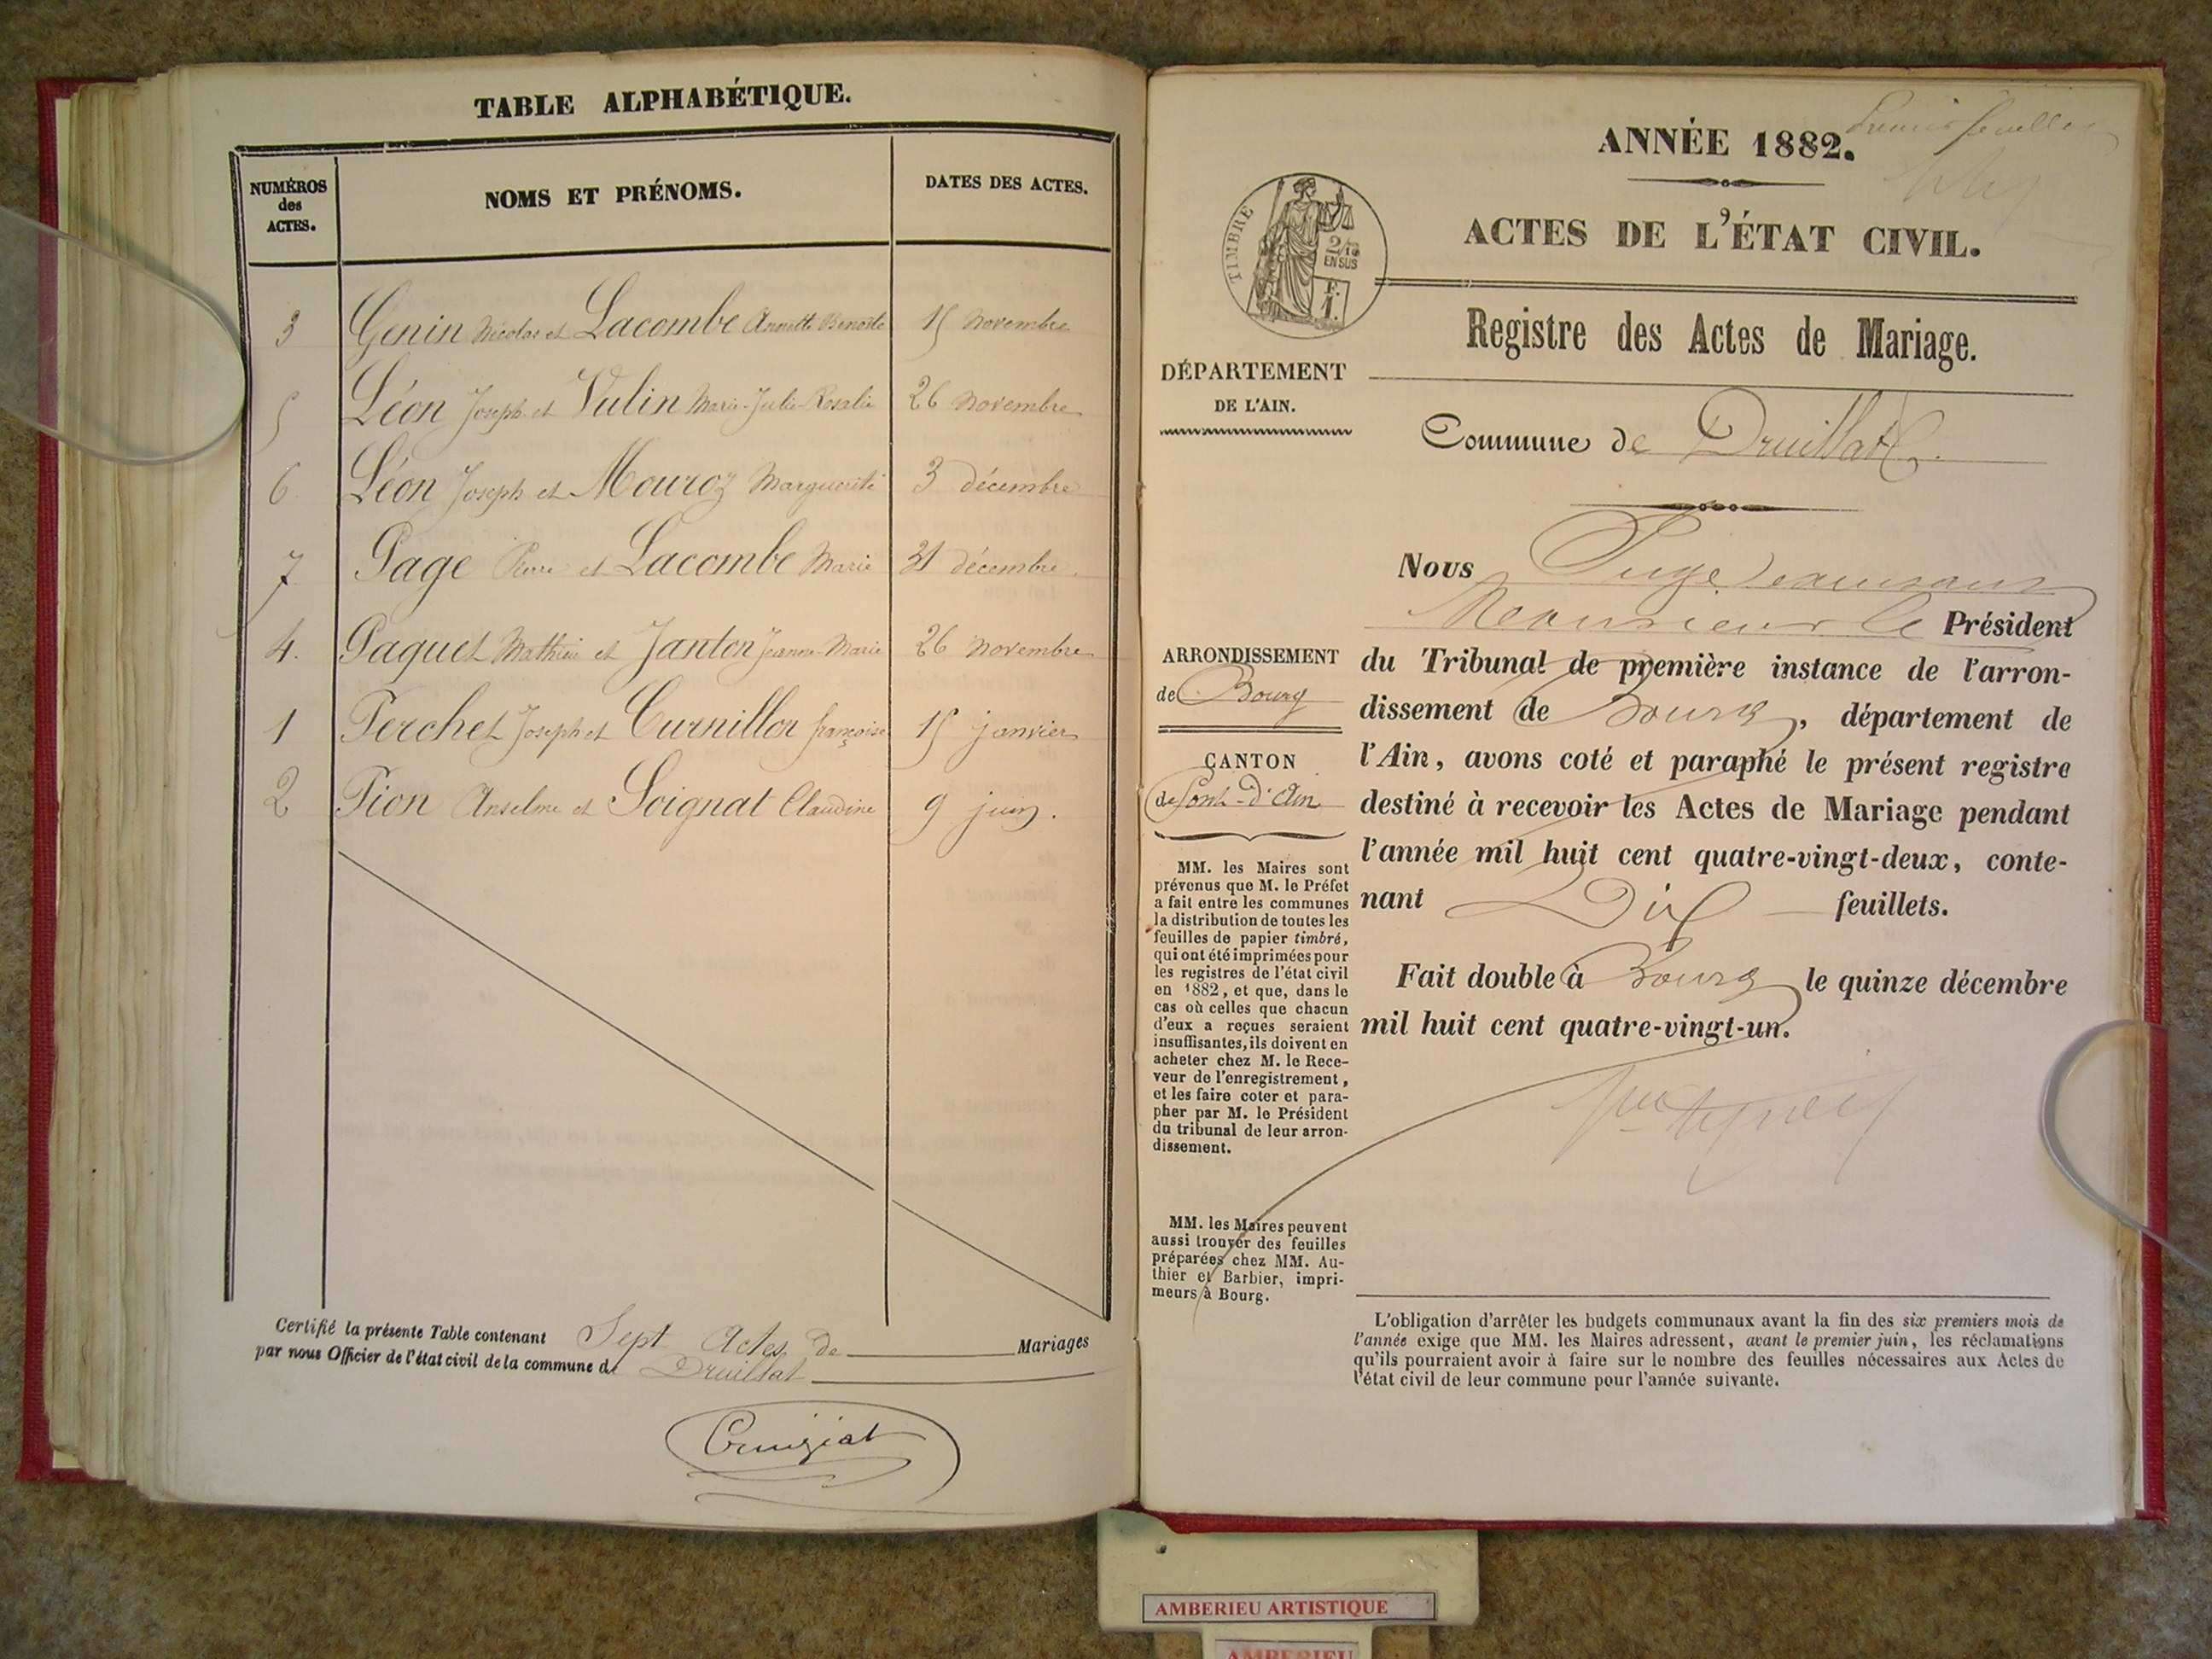 TABLE ALPHABÉTIQUE.
NUMÉROS
des
ACTES.
NOMS ET PRÉNOMS.
DATES DES ACTES.
3 Genin Nicolas et Lacombe Annette Benoite 15 novembre
5 Léon Joseph et Vulin Marie-Julie-Rosalie 26 novembre
6 Léon Joseph et Mouroz Marguerite 3 décembre
7 Page Pierre et Lacombe Marie 31 décembre
4. Paquet Mathieu et Janton Jeanne-Marie 26 novembre
1 Perchet Joseph et Curnillon françoise 15 janvier
2 Pion Anselme et Soignat Claudine 9 juin.
Certifié la présente Table contenant Sept Actes de Mariages
par nous Officier de l'état civil de la commune de Druillat
Cruiziat
ANNÉE 1882.
ACTES DE L'ÉTAT CIVIL.
TIMBRE
2/10
EN SUS
F.
1.
Registre des Actes de Mariage.
DÉPARTEMENT
DE L'AIN.
Commune de Druillat.
Nous Juge
le Président
du Tribunal de première instance de l'arron-
dissement de Bourg, département de
l'Ain, avons coté et paraphé le présent registre
destiné à recevoir les Actes de Mariage pendant
l'année mil huit cent quatre-vingt-deux, conte-
nant Dix feuillets.
Fait double à Bourg le quinze décembre
mil huit cent quatre-vingt-un.
ARRONDISSEMENT
de Bourg
CANTON
de Pont-d'Ain
MM. les Maires sont
prévenus que M. le Préfet
a fait entre les communes
la distribution de toutes les
feuilles de papier timbré,
qui ont été imprimées pour
les registres de l'état civil
en 1882, et que, dans le
cas où celles que chacun
d'eux a reçues seraient
insuffisantes, ils doivent en
acheter chez M. le Rece-
veur de l'enregistrement,
et les faire coter et para-
pher par M. le Président
du tribunal de leur arron-
dissement.
MM. les Maires peuvent
aussi trouver des feuilles
préparées chez MM. Au-
thier et Barbier, impri-
meurs à Bourg.
L'obligation d'arrêter les budgets communaux avant la fin des six premiers mois de
l'année exige que MM. les Maires adressent, avant le premier juin, les réclamations
qu'ils pourraient avoir à faire sur le nombre des feuilles nécessaires aux Actes de
l'état civil de leur commune pour l'année suivante.
AMBERIEU ARTISTIQUE
AMBERIEU